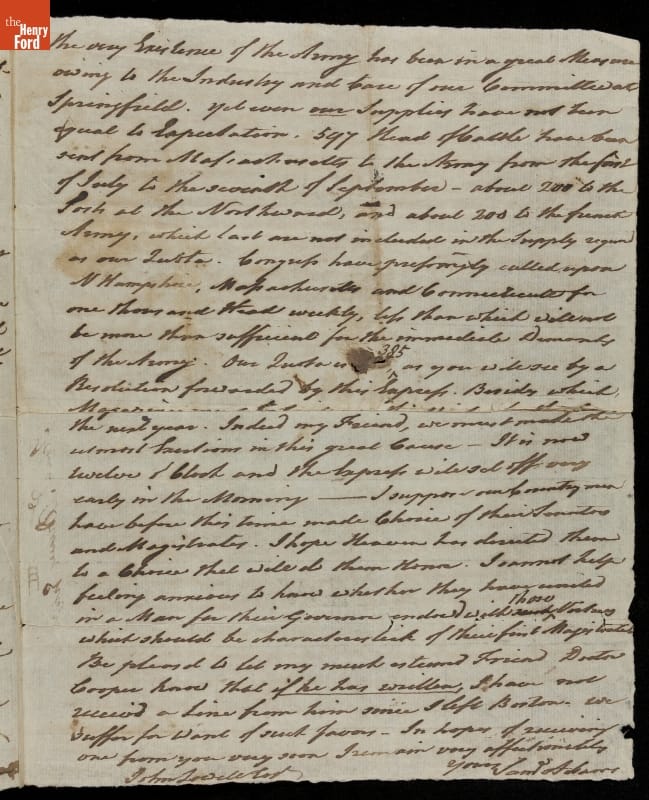 the Henry Ford
the very Existence of the Army has been in a great Measure
owing to the Industry and Care of our Committee at
Springfield. yet even our Supplies have not been
equal to Expectation. 597 Head of Cattle have been
sent from Massachusetts to the Army from the first
of July to the seventh of September - about 200 to the
Posts at the Northward, and about 200 to the french
Army, which last are not included in the Supply requird
as our Quota. Congress have pressingly called upon
N Hampshire, Massachusetts and Connecticutt for
one thousand Head weekly, less than which will not
be more than sufficient for the immediate Demands
of the Army. Our Quota is 385 as you will see by a
Resolution forwarded by this Express. Besides which,
the next year. Indeed my Friend, we must make the
utmost Exertions in this great Cause - It is now
twelve o Clock and the Express will set off very
early in the Morning —— I suppose our Country men
have before this time made Choice of their Senators
and Magistrates. I hope Heaven has directed them
to a Choice that will do them Honor. I cannot help
feeling anxious to know whether they have united
in a Man for their Governor endowd with those Virtues
which should be characteristick of their first Magistrate
Be pleasd to let my much esteemd Friend Doctor
Cooper know that if he has written, I have not
receivd a Line from him since I left Boston. we
suffer for Want of such favors - In hopes of receiving
one from you very soon I remain very affectionately
Yours
John Lovell Esqr
Saml Adams